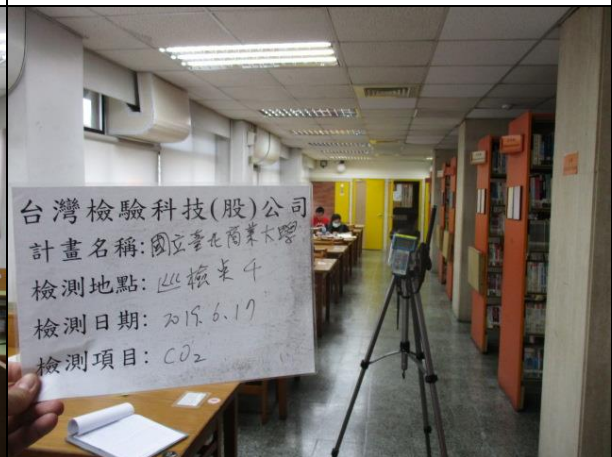 台灣檢驗科技(股)公司
計畫名稱:國立臺北商業大學
檢測地點:巡檢點4
檢測日期:2019.6.17
檢測項目:CO₂